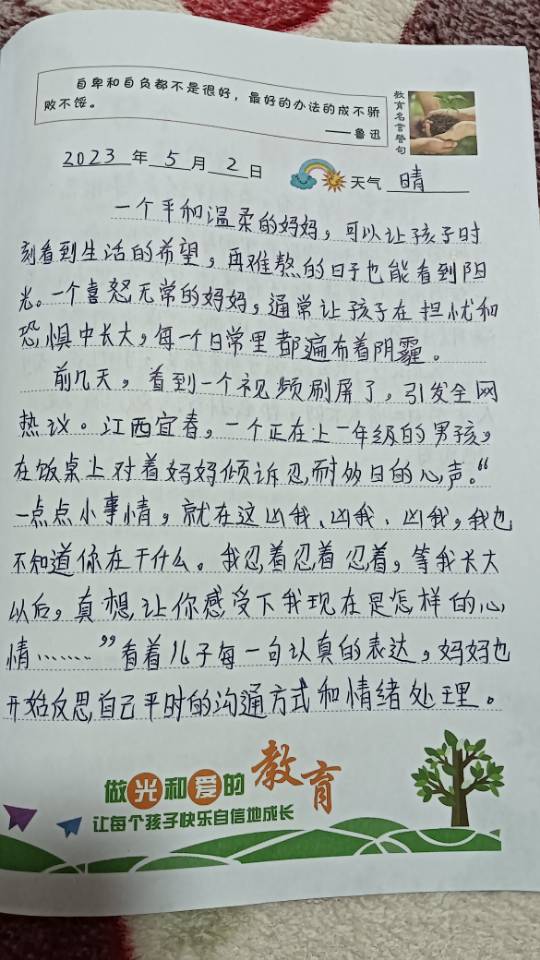 自卑和自负都不是很好，最好的办法的成不骄
败不馁。
——鲁迅
教育名言警句
2023年5月2日
天气 晴
一个平和温柔的妈妈，可以让孩子时
刻看到生活的希望，再难熬的日子也能看到阳
光。一个喜怒无常的妈妈，通常让孩子在担忧和
恐惧中长大，每一个日常里都遍布着阴霾。
前几天，看到一个视频刷屏了，引发全网
热议。江西宜春，一个正在上一年级的男孩，
在饭桌上对着妈妈倾诉忍耐多日的心声。“
一点点小事情，就在这凶我、凶我、凶我，我也
不知道你在干什么。我忍着忍着忍着，等我长大
以后，真想让你感受下我现在是怎样的心
情……”看着儿子每一句认真的表达，妈妈也
开始反思自己平时的沟通方式和情绪处理。
做光和爱的教育
让每个孩子快乐自信地成长